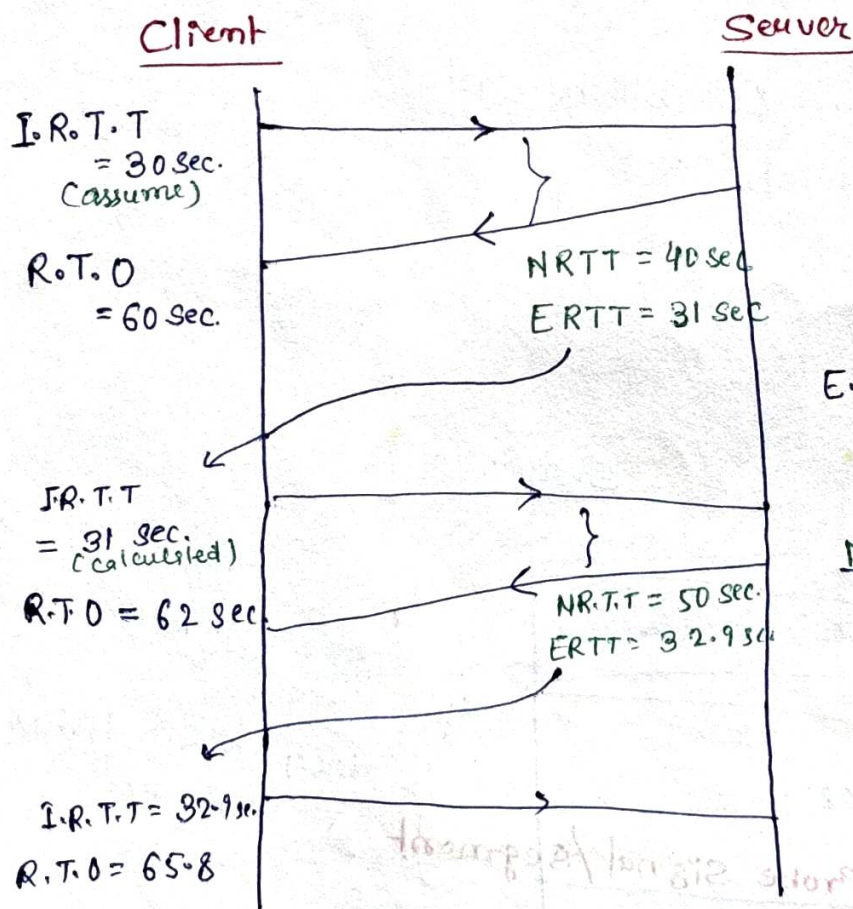 Client
Server
I.R.T.T
= 30 sec.
(assume)
R.T.O
= 60 sec.
NRTT = 40 sec
ERTT = 31 sec
E.
I.R.T.T
= 31 sec.
(calculated)
R.T.O = 62 sec
NR.T.T = 50 sec.
ERTT = 32.9 sec
I.R.T.T = 32.9 se.
R.T.O = 65.8